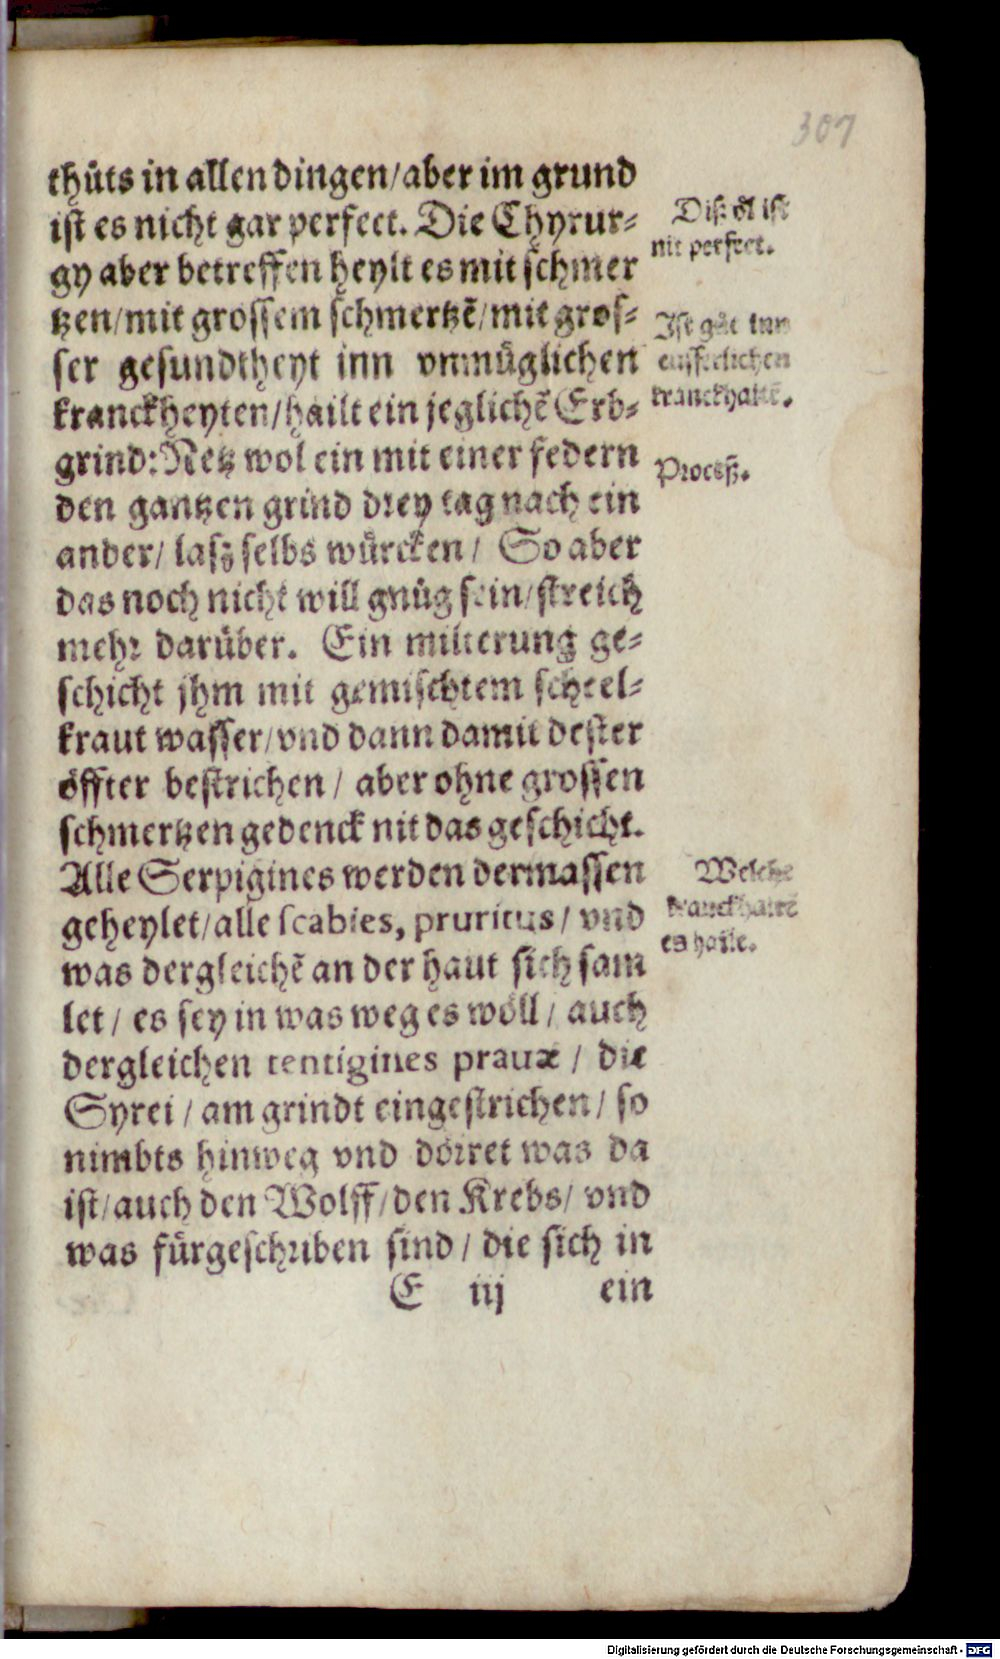 307
thůts in allen dingen/aber im grund
ist es nicht gar perfect. Die Chyrur⸗
gy aber betreffen heylt es mit schmer
tzen/mit grossem schmertzē/mit gros⸗
ser gesundtheyt inn vnmüglichen
kranckheyten/hailt ein jeglichē Erb⸗
grind: Netz wol ein mit einer federn
den gantzen grind drey tag nach ein
ander/ lasz selbs würcken/ So aber
das noch nicht will gnůg sein/streich
mehr darüber. Ein milterung ge⸗
schicht jhm mit gemischtem scheel⸗
kraut wasser/vnd dann damit dester
öffter bestrichen/ aber ohne grossen
schmertzen gedenck nit das geschicht.
Alle Serpigines werden dermassen
geheylet/alle scabies, pruritus/ vnd
was dergleichē an der haut sich sam
let/ es sey in was weg es wöll/ auch
dergleichen tentigines prauæ/ die
Syrei/ am grindt eingestrichen/ so
nimbts hinweg vnd dörret was da
ist/auch den Wolff/den Krebs/ vnd
was fürgeschriben sind/ die sich in
E iij ein
Diß öl ist
nit perfect.
Ist gůt inn
eusserlichen
kranckhaitē.
Proceß.
Welche
kranckhaitē
es haile.
Digitalisierung gefördert durch die Deutsche Forschungsgemeinschaft - DFG